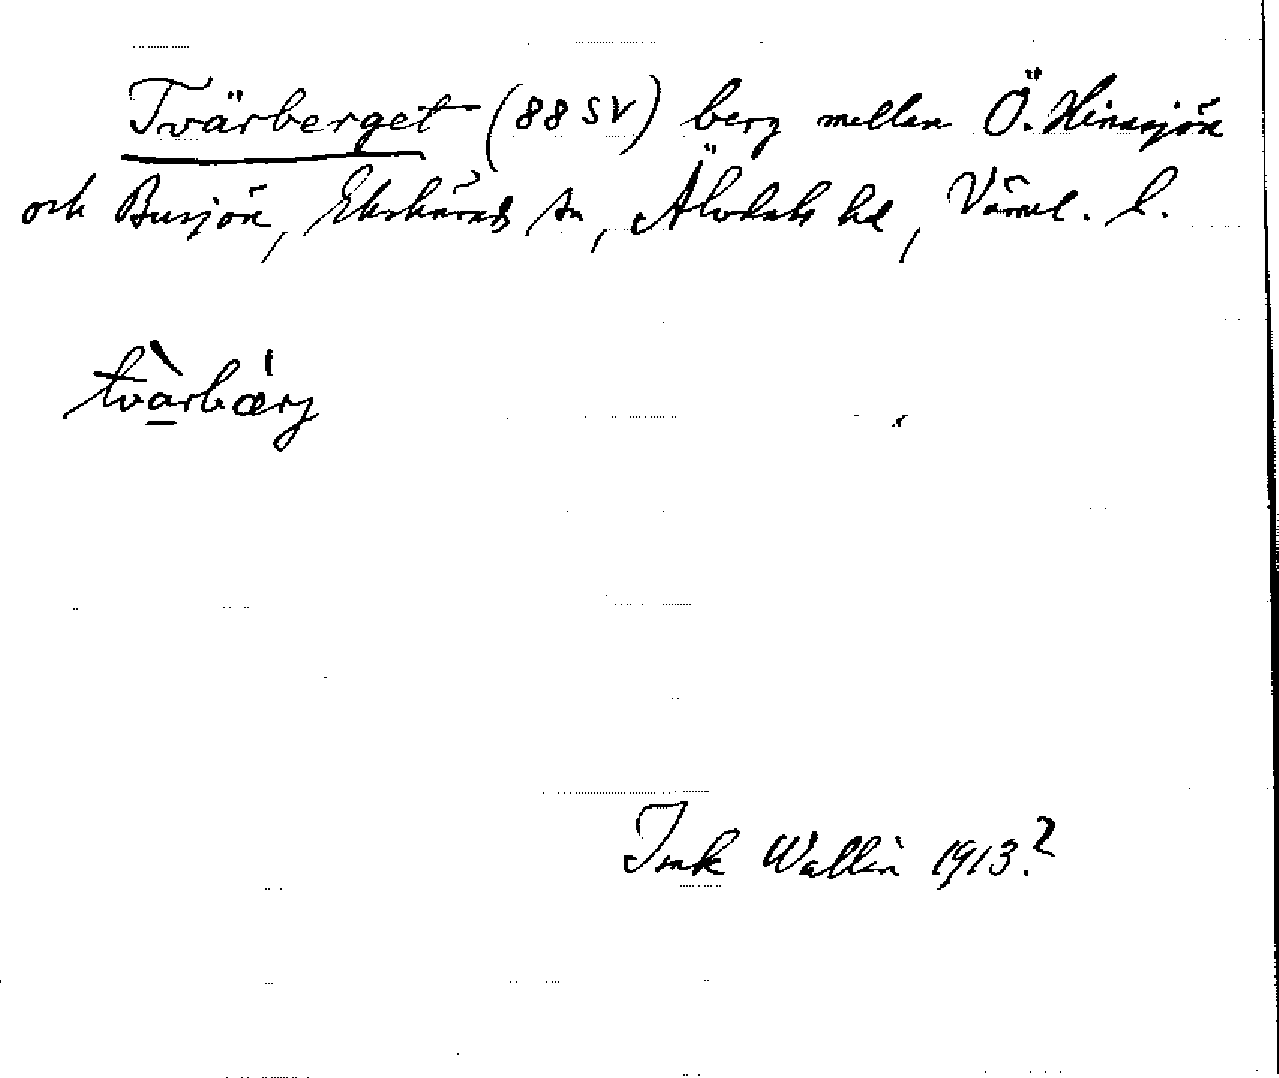 Tvärberget (88 SV) berg mellan Ö. Hinnsjön
och Busjön, Ekshärads sn, Älvdals hd, Värml. l.
tvà̱rbǽrj
Wallin 1913?